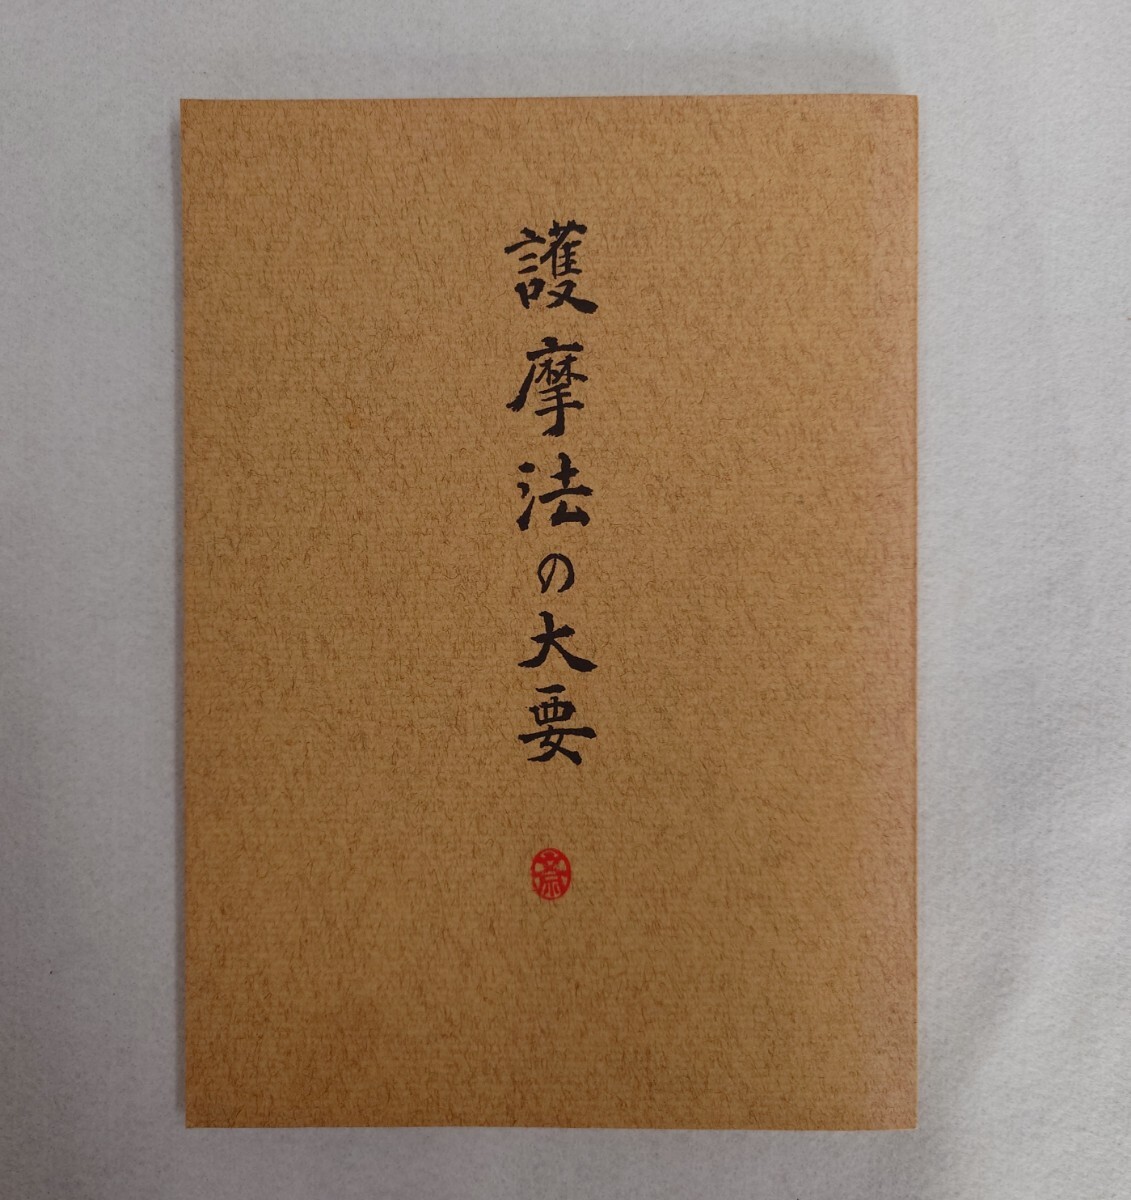 護摩法の大要